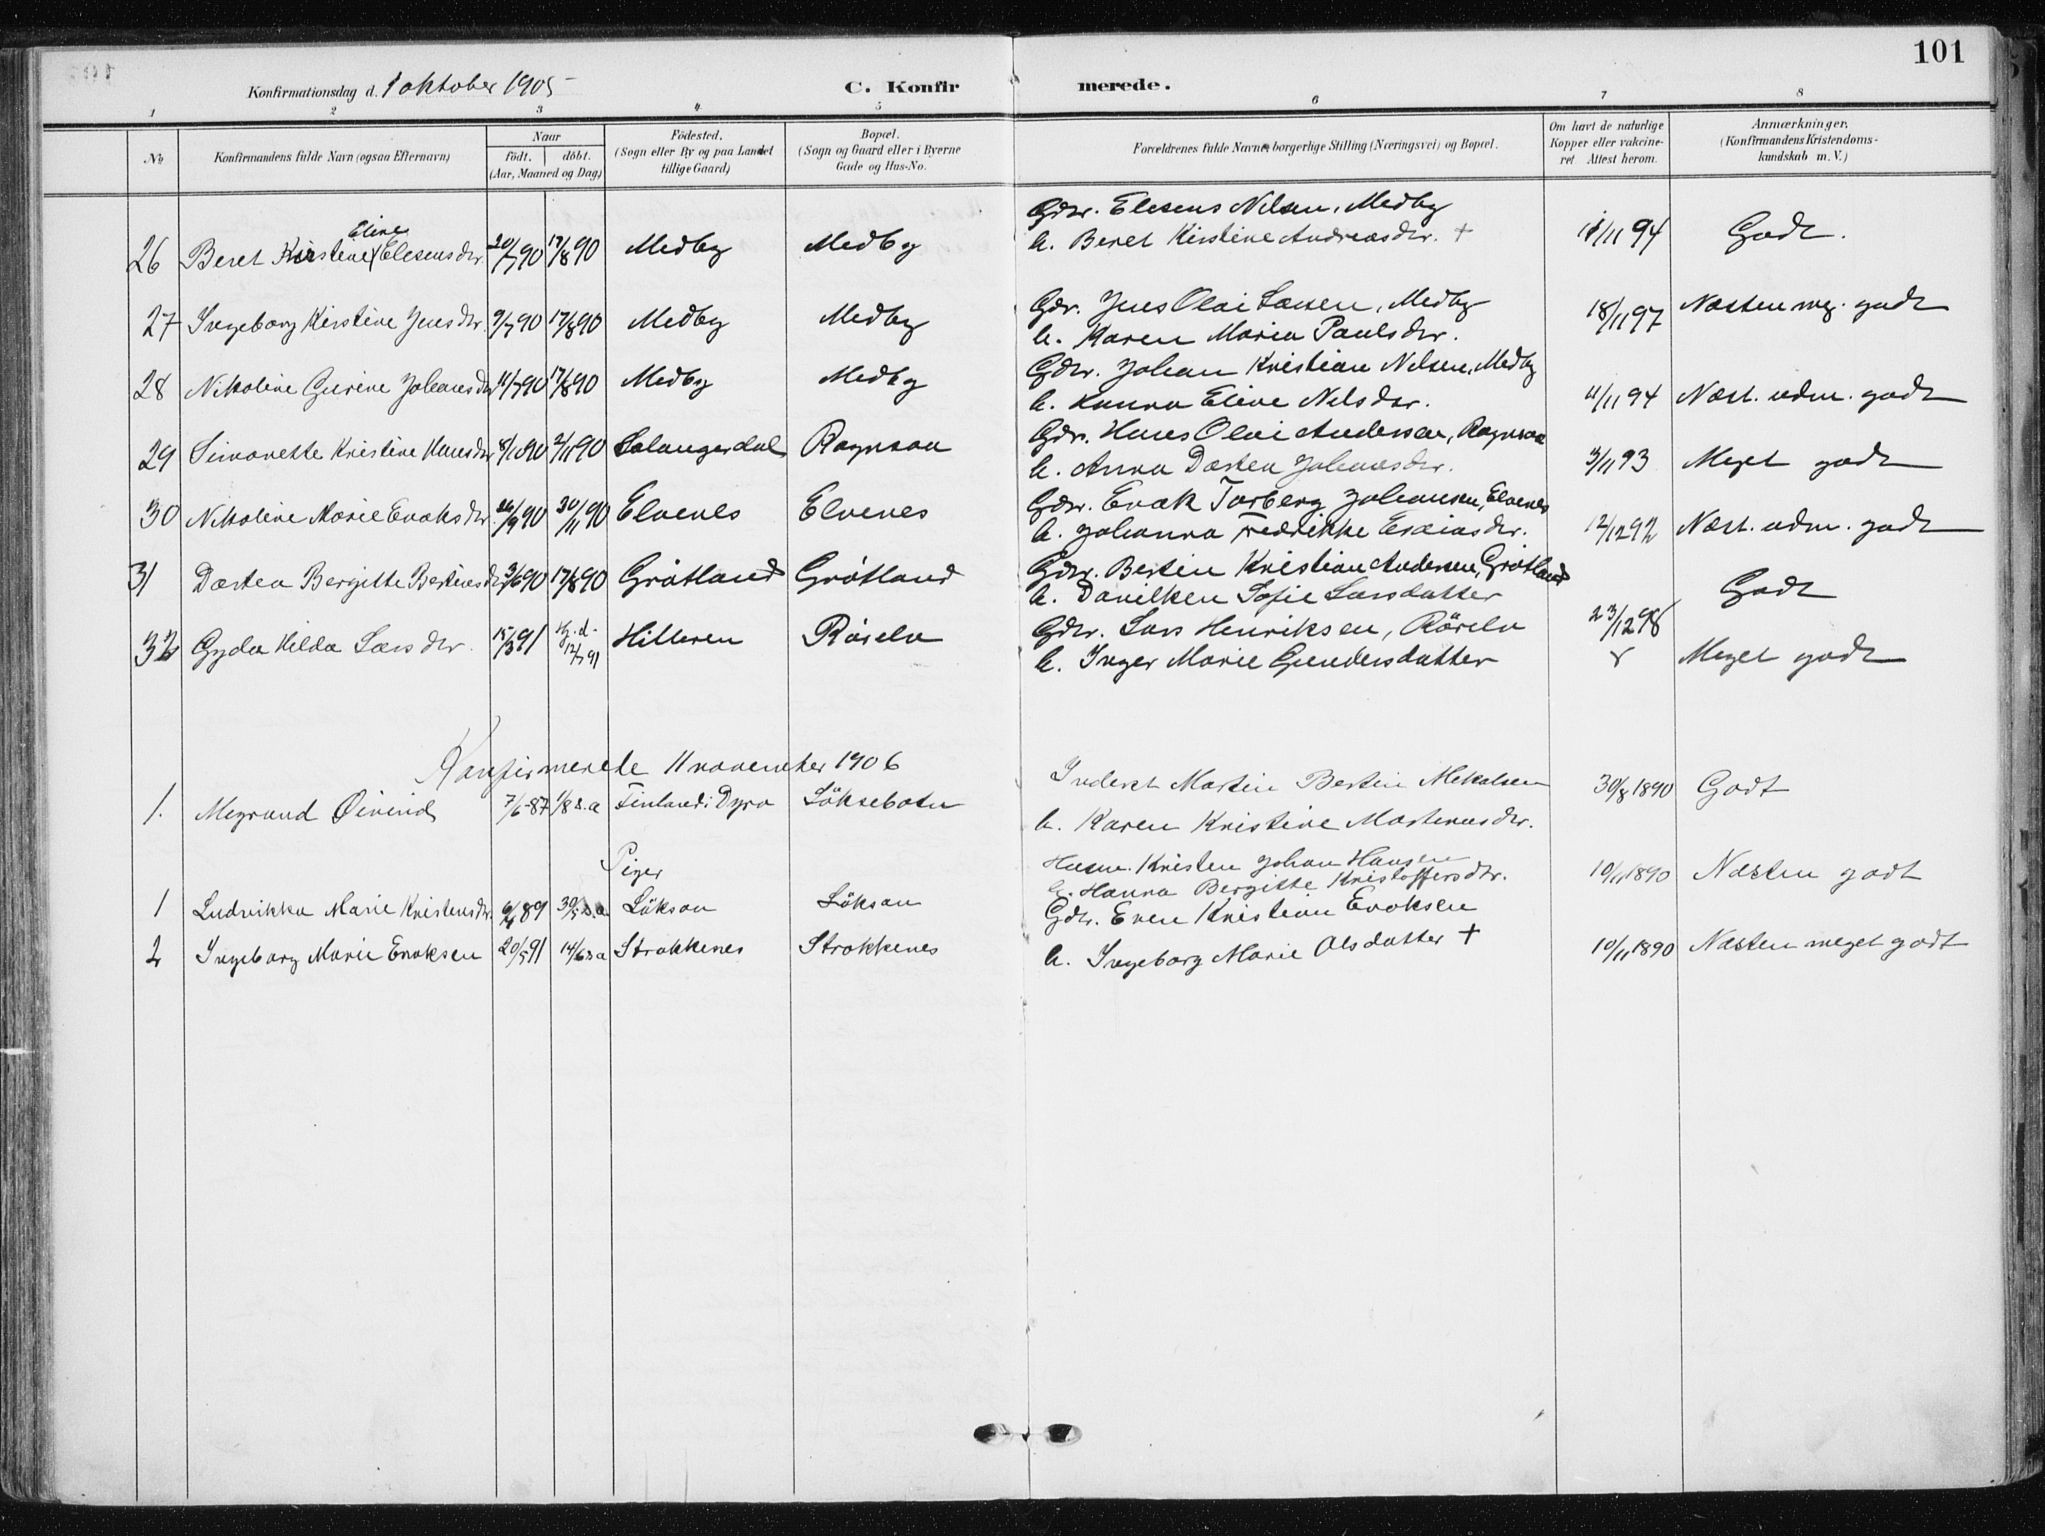 101
Konfirmationsdag d. 1 oktober 1905
C. Konfirmerede.
1 2 3 4 5 6 7 8
No
Konfirmandens fulde Navn (ogsaa Efternavn)
Naar
födt. döbt.
(Aar, Maaned og Dag)
Födested.
(Sogn eller By og paa Landet
tillige Gaard)
Bopæl.
(Sogn og Gaard eller i Byerne
Gade og Hus-No.
Forældrenes fulde Navne, borgerlige Stilling (Næringsvei) og Bopæl.
Om havt de naturlige
Kopper eller vakcine-
ret Attest herom.
Anmærkninger.
(Konfirmandens Kristendoms-
kundskab m. V.)
Gdr. Elesens Nilsen, Medby
Eline
26 Beret Kirstine Elesensdtr 20/7 90 17/8 90 Medby Medby h. Beret Kirstine Andreasdtr. + 11/11 94 Godt.
Gdr. Jens Olai Larsen, Medby
27 Ingeborg Kirstine Jensdtr. 9/7 90 17/8 90 Medby Medby 18/11 97 Næsten meg. godt
h. Karen Maria Paulsdtr.
Gdr. Johan Kristian Nilsen, Medby
28 Nikoline Gurine Johansdtr 11/7 90 17/8 90 Medby Medby 11/11 94 Næst. udm. godt
h. Hanna Eline Nilsdtr.
Gdr. Hans Olai Andersen, Rognsaa
29 Simonette Kristine Hansdtr 8/10 90 2/11 90 Salangsdal Rognsaa 3/11 93 Meget godt
h. Anna Dortea Johansdtr.
Gdr. Enok Torberg Johansen, Elvenes
30 Nikoline Marie Enoksdtr. 26/9 90 30/11 90 Elvenes Elvenes 12/12 92 Næst. udm. godt
h. Johanna Fredrikke Esaiasdtr.
Gdr. Bertin Kristian Andersen, Grøtland
31 Dortea Bergitte Bertinsdtr 3/6 90 17/8 90 Grøtland Grøtland Godt
h. Danilken Sofie Larsdatter
23/12 98
Gdr. Lars Henriksen, Röselv
32 Gyda Hilda Larsdtr. 15/3 91 Hj. d. 12/7 91 Hilleren Röselv Meget godt
h. Inger Marie Gundersdatter
Konfirmerede 11 november 1906
Inderst Martin Bertin Mikalsen
1. Megrund Øivind 7/6-87 1/8 s.a Finland i Dyrø Löksebotn 30/8 1890 Godt
h. Karen Kristine Mortensdtr.
Piger
Husm. Kristen Johan Hansen
1 Ludvikka Marie Kristensdtr. 6/4 89 30/5 s.a. Löksan Löksan h. Hanna Bergitte Kristoffersdtr. 10/11 1890 Næsten godt
Gdr. Even Kristian Enoksen
2 Ingeborg Marie Enoksen 20/5 91 14/6 s.a Strokkenes Strokkenes h. Ingeborg Marie Olsdatter + 10/11 1890 Næsten meget godt